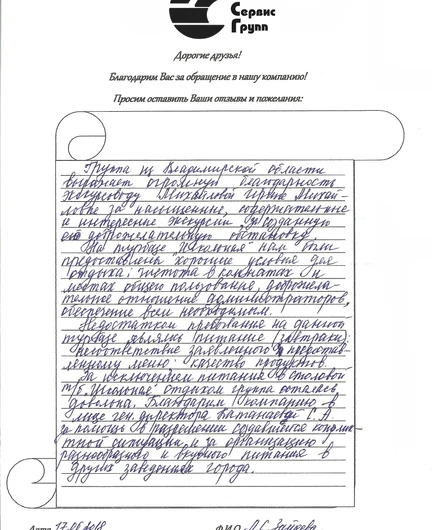 Сервис
Групп
Дорогие друзья!
Благодарим Вас за обращение в нашу компанию!
Просим оставить Ваши отзывы и пожелания:
Группа из Владимирской области
выражает огромную благодарность
экскурсоводу Михайловой Ирине Михай-
ловне за насыщенные, содержательные
и интересные экскурсии и созданную
ею доброжелательную обстановку.
На турбазе "Школьная" нам были
предоставлены хорошие условия для
отдыха: чистота в комнатах и
местах общего пользования, доброжела
тельное отношение администраторов,
обеспечение всем необходимым.
Недостатком пребывания на данной
турбазе являлись питание (завтраки):
несоответствие заявленного и предостав-
ленному меню: качество продуктов.
За исключением питания в столовой
т/б. Школьная отдыхом группа осталась
довольна. Благодарим компанию в
лице ген. директора С.А
за помощь в разрешении создавшейся конфлик
тной ситуации и за организацию
разнообразного и вкусного питания в
других заведениях города.
Дата 17.06.2018 Ф.И.О. Л.С. Зайцева